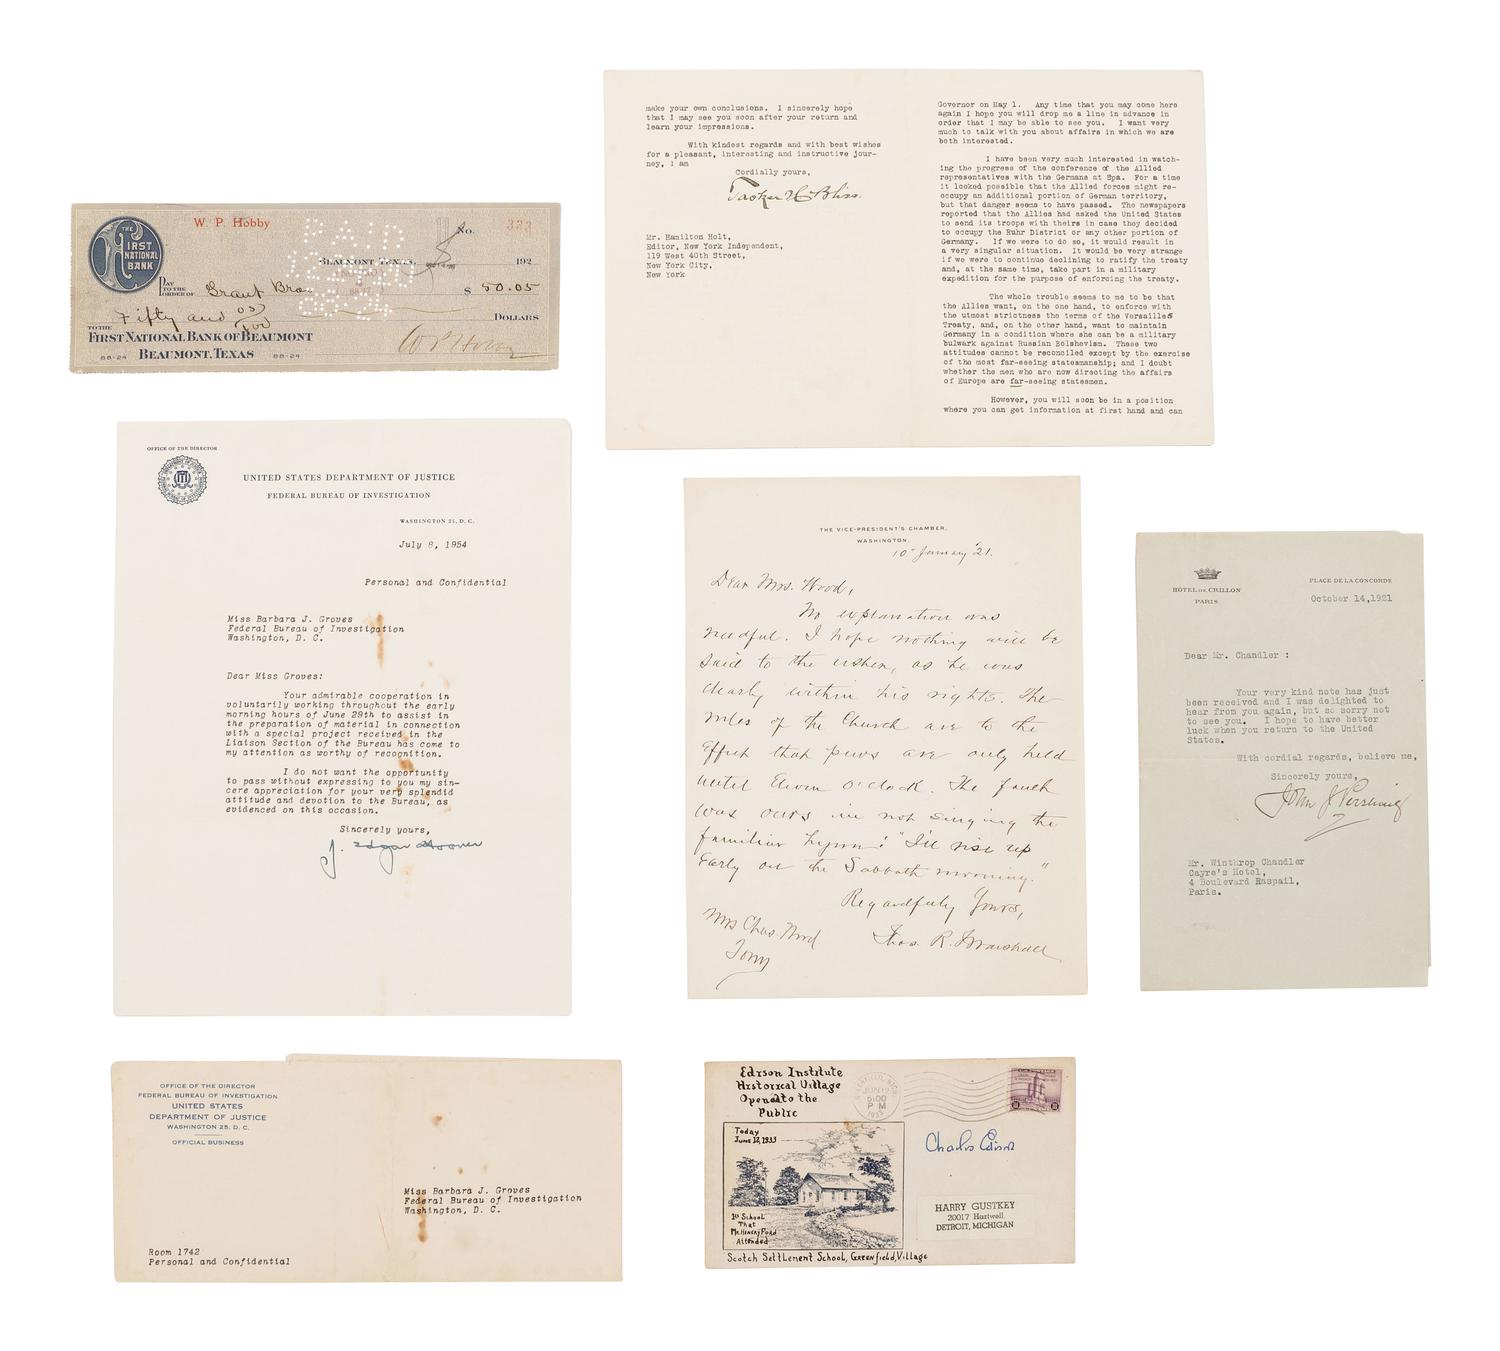 W. P. Hobby
No. 333
THE
FIRST
NATIONAL
BANK
BEAUMONT, TEXAS, 192
PAY
TO THE
ORDER OF Grant Bro
$ 50.05
Fifty and 05/100
DOLLARS
TO THE
FIRST NATIONAL BANK OF BEAUMONT
88-24 BEAUMONT, TEXAS 88-24
W P Hobby
make your own conclusions. I sincerely hope
that I may see you soon after your return and
learn your impressions.
With kindest regards and with best wishes
for a pleasant, interesting and instructive jour-
ney, I am
Cordially yours,
Tasker H. Bliss.
Mr. Hamilton Holt,
Editor, New York Independent,
119 West 40th Street,
New York City,
New York
Governor on May 1. Any time that you may come here
again I hope you will drop me a line in advance in
order that I may be able to see you. I want very
much to talk with you about affairs in which we are
both interested.
I have been very much interested in watch-
ing the progress of the conference of the Allied
representatives with the Germans at Spa. For a time
it looked possible that the Allied forces might re-
occupy an additional portion of German territory,
but that danger seems to have passed. The newspapers
reported that the Allies had asked the United States
to send its troops with theirs in case they decided
to occupy the Ruhr District or any other portion of
Germany. If we were to do so, it would result in
a very singular situation. It would be very strange
if we were to continue declining to ratify the treaty
and, at the same time, take part in a military
expedition for the purpose of enforcing the treaty.
The whole trouble seems to me to be that
the Allies want, on the one hand, to enforce with
the utmost strictness the terms of the Versailles
Treaty, and, on the other hand, want to maintain
Germany in a condition where she can be a military
bulwark against Russian Bolshevism. These two
attitudes cannot be reconciled except by the exercise
of the most far-seeing statesmanship; and I doubt
whether the men who are now directing the affairs
of Europe are far-seeing statesmen.
However, you will soon be in a position
where you can get information at first hand and can
OFFICE OF THE DIRECTOR
UNITED STATES DEPARTMENT OF JUSTICE
FEDERAL BUREAU OF INVESTIGATION
WASHINGTON 25, D. C.
July 8, 1954
Personal and Confidential
Miss Barbara J. Groves
Federal Bureau of Investigation
Washington, D. C.
Dear Miss Groves:
Your admirable cooperation in
voluntarily working throughout the early
morning hours of June 29th to assist in
the preparation of material in connection
with a special project received in the
Liaison Section of the Bureau has come to
my attention as worthy of recognition.
I do not want the opportunity
to pass without expressing to you my sin-
cere appreciation for your very splendid
attitude and devotion to the Bureau, as
evidenced on this occasion.
Sincerely yours,
J. Edgar Hoover
THE VICE-PRESIDENT'S CHAMBER,
WASHINGTON.
10" January '21.
Dear Mrs. Wood,
No explanation was
needful. I hope nothing will be
said to the usher, as he was
clearly within his rights. The
rules of the Church are to the
Effect that pews are only held
until Eleven O'clock. The fault
was ours in not singing the
familiar hymn: "I'll rise up
Early on the Sabbath morning."
Regardfully Yours,
Thos. R. Marshall
Mrs Chas. Wood.
HÔTEL DE CRILLON
PARIS
PLACE DE LA CONCORDE
October 14, 1921
Dear Mr. Chandler :
Your very kind note has just
been received and I was delighted to
hear from you again, but so sorry not
to see you. I hope to have better
luck when you return to the United
States.
With cordial regards, believe me,
Sincerely yours,
John J Pershing
Mr. Winthrop Chandler
Cayre's Hotel,
4 Boulevard Raspail,
Paris.
OFFICE OF THE DIRECTOR
FEDERAL BUREAU OF INVESTIGATION
UNITED STATES
DEPARTMENT OF JUSTICE
WASHINGTON 25, D. C.
OFFICIAL BUSINESS
Miss Barbara J. Groves
Federal Bureau of Investigation
Washington, D. C.
Room 1742
Personal and Confidential
Edison Institute
Historical Village
Opened to the
Public
JUN 12
5:00
P M
1933
Today
June 12, 1933
1st School
That
Mr. Henry Ford
Attended
Scotch Settlement School, Greenfield, Village
Charles Edison
HARRY GUSTKEY
20017 Hartwell
DETROIT, MICHIGAN